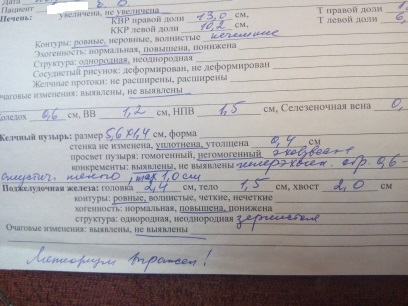 Дата
Пациент
Печень: увеличена, не увеличена
КВР правой доли 13,0 см, Т правой доли
ККР левой доли 10,2 см, Т левой доли 6,
Контуры: ровные, неровные, волнистые
Эхогенность: нормальная, повышена, понижена
Структура: однородная, неоднородная
Сосудистый рисунок: деформирован, не деформирован
Желчные протоки: не расширены, расширены
Очаговые изменения: выявлены, не выявлены
Холедох 0,6 см, ВВ 1,2 см, НПВ 1,5 см, Селезеночная вена 0,
Желчный пузырь: размер 5,6х1,4 см, форма
стенка не изменена, уплотнена, утолщена 0,4 см
просвет пузыря: гомогенный, негомогенный
конкременты: выявлены, не выявлены гиперэхоген. стр. 0,6 -
акустич. тенью, max 1,0 см
Поджелудочная железа: головка 2,4 см, тело 1,5 см, хвост 2,0 см
контуры: ровные, волнистые, четкие, нечеткие
эхогенность: нормальная, повышена, понижена
структура: однородная, неоднородная зернистая
Очаговые изменения: выявлены, не выявлены
Метеоризм выражен!